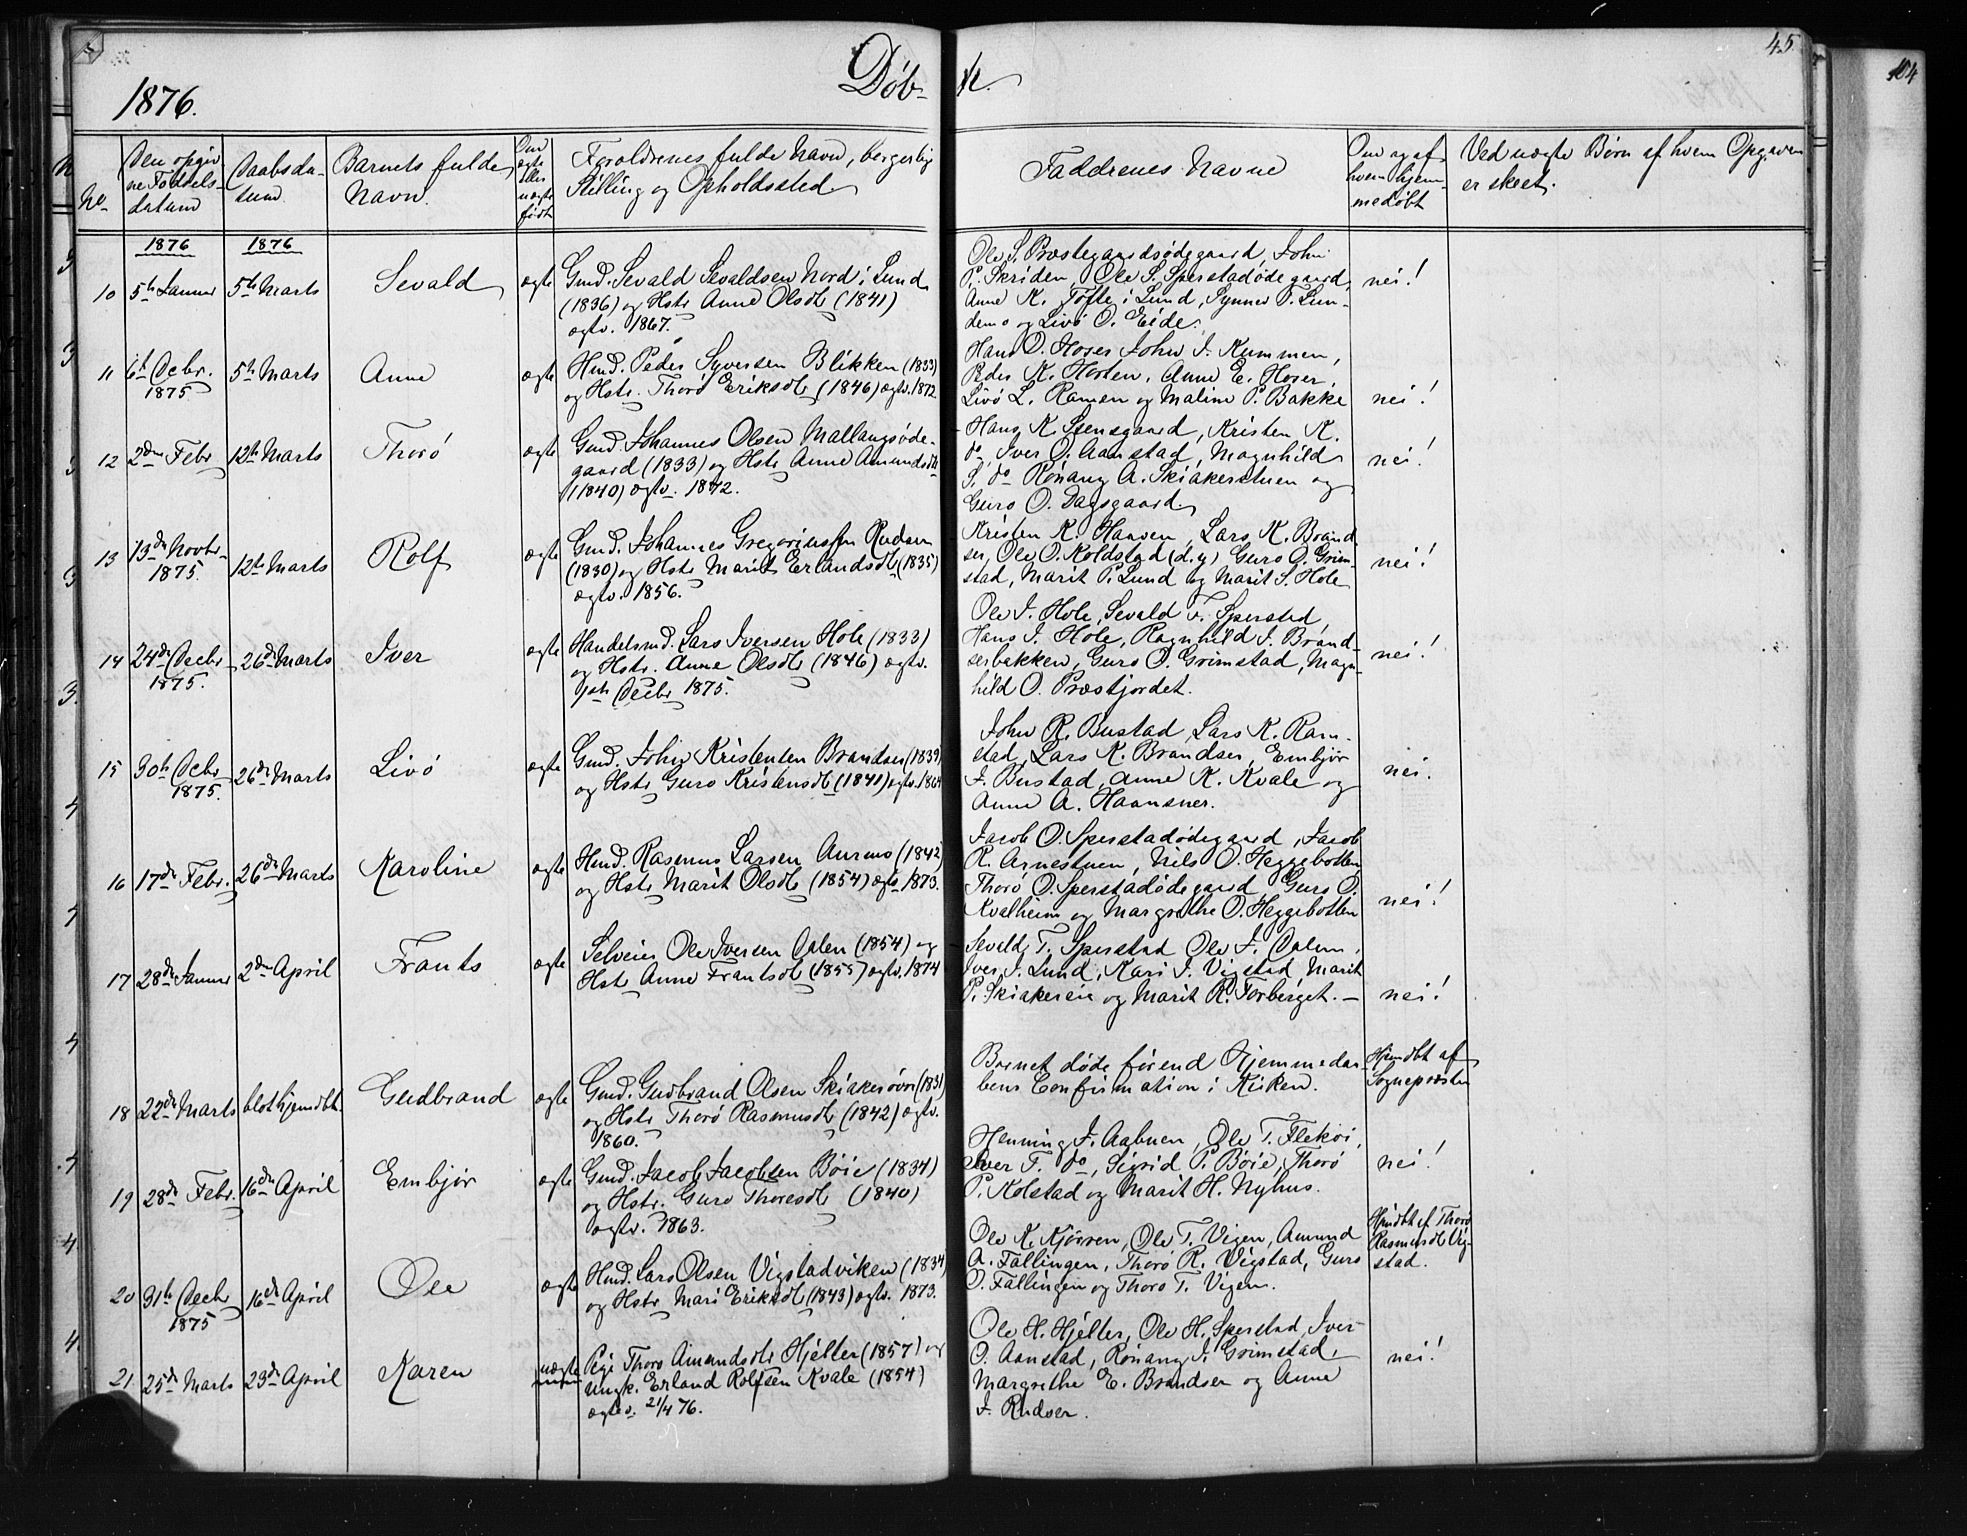 45
1876. Døbte.
No. Den opgivne Fødselsdatum Daabsdatum Barnets fulde Navn. Om ægte eller uægte født Forældrenes fulde Navn, borgerlig Stilling og Opholdssted. Faddrenes Navne Om og af hvem hjemmedøbt Ved uægte Børn af hvem Opgaven er skeet.
1876 1876
10 5te Januar 5te Marts Sevald ægte
Gmd. Sevald Sevaldsen Nord i Lund
(1836) og Hstr Anne Olsdtr (1841)
ægtv. 1867.
Ole S. Præstegaardsødegaard, John
P. Skriden, Ole S. Sperstadødegaard,
Anne K. Tofte i Lund, Synnev P. Lun-
demo og Livö O. Eide.
nei!
11 6te Decbr. 1875 5te Marts Anne ægte
Hmd. Peder Syversen Blikken (1833)
og Hstr. Thorö Eriksdtr (1846) ægtv. 1872
Hans O. Hoser John J. Kummen,
Peder K. Horten, Anne E. Hoser,
Livö L. Ramen og Maline P. Bakke
nei!
12 2den Febr. 12te Marts Thorö ægte
Gmd. Johannes Olsen Mallangsøde-
gaard (1833) og Hstr Anne Amundsdtr
(1840) ægtv. 1872.
Hans K. Steensgaard, Kristen K.
do Iver O. Aanstad, Magnhild
S. do Rönaug A. Skiakerstuen og
Guro O. Dagsgaard.
nei!
13 13de Novbr. 1875. 12te Marts Rolf ægte
Gmd. Johannes Gregoriussen Rudsen
(1830) og Hstr Marit Erlandsdtr (1835)
ægtv. 1856.
Kristen K. Haaven, Lars K. Brand-
ser, Ole O. Koldstad (d. y) Guro O. Grim-
stad, Marit P. Lund og Marit S. Hole
nei!
14 24de Decbr 1875. 26de Marts Iver ægte
Handelsmd. Lars Iversen Hole (1833)
og Hstr. Anne Olsdtr (1846) ægtv.
Decbr 1875.
Ole I. Hole, Sevald T. Sperstad,
Hans I. Hole, Ragnhild J. Brand-
serbakken, Guro O. Grimstad, Magn-
hild O. Præstjordet.
nei!
15 30te Decbr 1875. 26de Marts Livö ægte
Gmd. John Kristensen Brandser (1839)
og Hstr Guro Kristensdtr (1841) ægtv. 1864
John R. Bustad, Lars K. Ram-
stad, Lars K. Brandser, Embjør
J. Bustad, Anne K. Kvale og
Anne A. Haansner.
nei.
16 17de Febr. 26de Marts Karoline ægte
Hmd. Rasmus Larsen Aureno (1842)
og Hstr Marit Olsdtr (1854) ægtv. 1873.
Jacob O. Sperstadødegaard, Jacob
R. Arnestuen, Nils O. Heggebotten
Thorö O. Sperstadødegaard Guro O.
Kvalheim og Margrethe O. Heggebotten
nei!
17 28de Januar 2den April Frants ægte
Selveier Ole Iversen Dalen (1854) og
Hstr Anne Frantsdtr (1855) ægtv. 1874
Sevald T. Sperstad Ole I. Dalen,
Iver I. Lund, Kari I. Vigstad, Marit
P. Skiakereie og Marit R. Forberget. —
nei!
18 22de Marts blot hjemdbt. Gudbrand ægte
Gmd. Gudbrand Olsen Skiakerøvre (1831)
og Hstr Thorö Rasmusdtr (1842) ægtv.
1860.
Barnet døde førend Hjemmedaa-
bens Confirmation i Kirken.
Hjemdbt af
Sognepræsten
19 28de Febr. 16de April Embjør ægte
Gmd. Jacob Jacobsen Böie (1834)
og Hstr. Guro Thoresdtr (1840)
ægtv. 1863.
Henning J. Aabuen, Ole T. Flekøi,
Iver T. do, Sigrid P. Böie, Thorö
P. Kolstad og Marit H. Nyhus.
nei!
20 31te Decbr 1875 16de April Ole ægte
Hmd. Lars Olsen Vigstadviken (1834)
og Hstr Mari Eriksdtr (1843) ægtv. 1873.
Ole K. Kjörren, Ole T. Vigen, Amund
A. Fallingen, Thorö R. Vigstad, Guro
O. Fallingen og Thorö T. Vigen.
Hjmdbt af Thorö
Rasmusdtr Vig-
stad.
21 25de Marts 23de April Karen uægte
Pige Thoro Amundsdtr Hjelter (1857) og
Ungk. Erland Rolfsen Kvale (1854)
ægtev. 21/4 76.
Ole H. Hjelter, Ole H. Sperstad, Iver
O. Aanstad, Rönaug I. Grimstad,
Margrethe E. Brandser og Anne
J. Rudser.
nei!